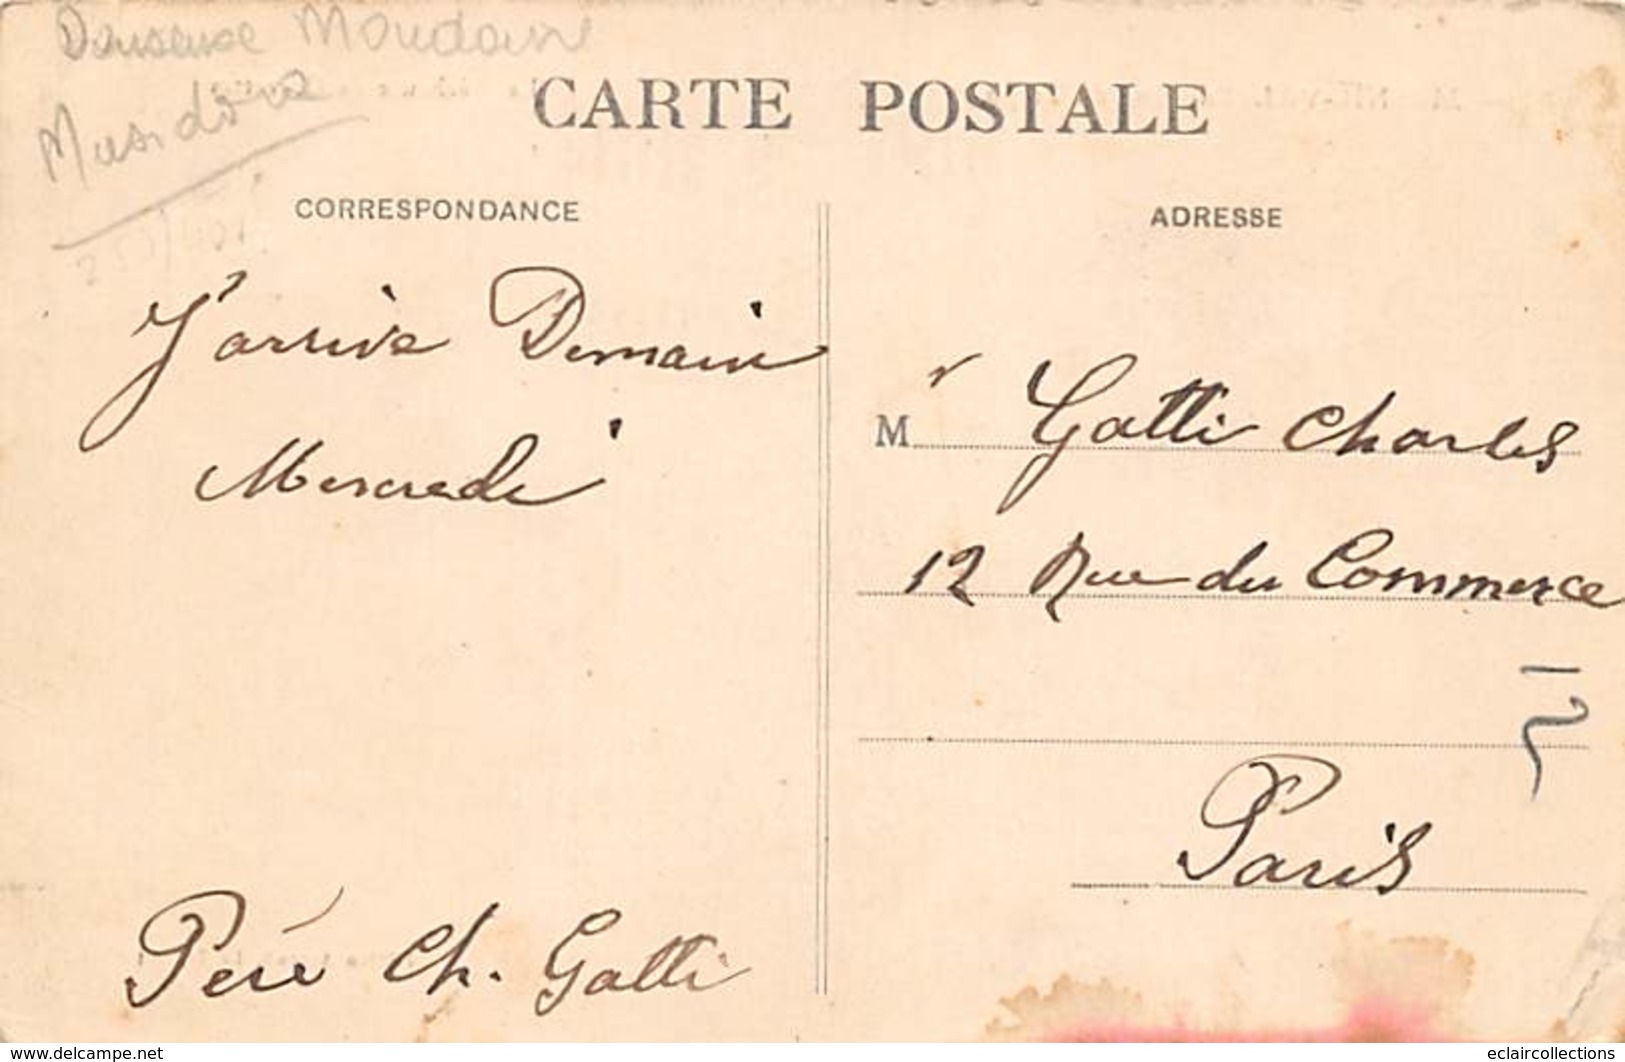 Danseuse Mondaine
Musidora
CARTE POSTALE
CORRESPONDANCE
ADRESSE
J'arrive Demain
Mercredi
Père Ch. Gatti
M r Gatti Charles
12 Rue du Commerce
Paris
www.delcampe.net
eclaircollections